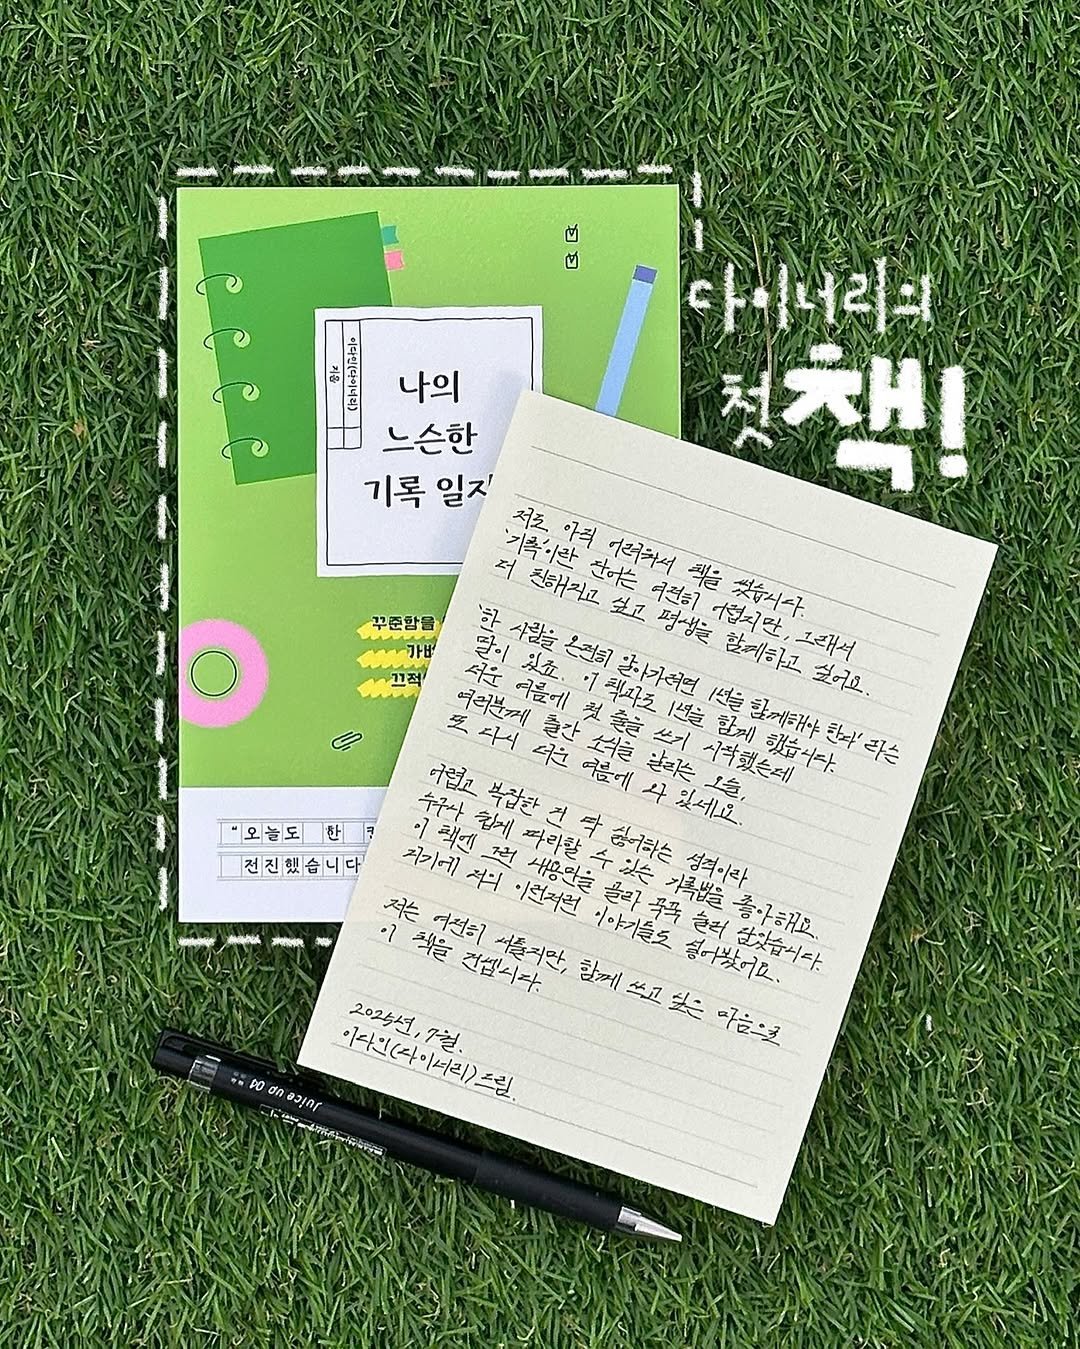 다이너리의
첫 책!
이다인(다이너리)
지음
나의
느슨한
기록 일지
꾸준함을
가벼
끄적
"오늘도 한 칸
전진했습니다
저도 아직 어려워서 책을 썼습니다.
'기록'이란 단어는 여전히 어렵지만, 그래서
더 친해지고 싶고 평생을 함께하고 싶어요.
'한 사람을 온전히 알아가려면 1년을 함께해야 한다' 라는
말이 있죠. 이 책과도 1년을 함께 했습니다.
더운 여름에 첫 줄을 쓰기 시작했는데
여러분께 출간 소식을 알리는 오늘,
또 다시 더운 여름에 와 있네요.
어렵고 복잡한 건 딱 싫어하는 성격이라
누구나 쉽게 따라할 수 있는 기록법을 좋아해요.
이 책에 그런 내용만을 골라 꾹꾹 눌러 담았습니다.
거기에 저의 이런저런 이야기들도 넣어봤어요.
저는 여전히 서툴지만, 함께 쓰고 싶은 마음으로
이 책을 건넵니다.
2025년, 7월.
이다인(다이너리) 드림.
Juice up 04